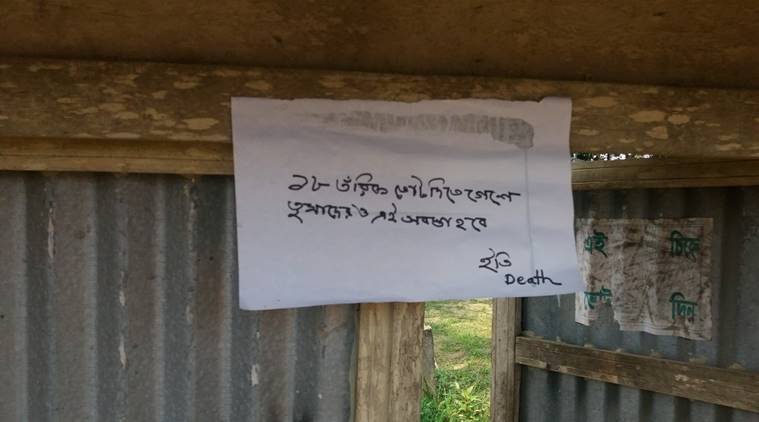 ১৮ তাঁরিক ভোট দিতে গেলে
তুমাদেরও এই অবস্তা হবে
ইতি
Death
এই চিহ্নে
ভোট দিন